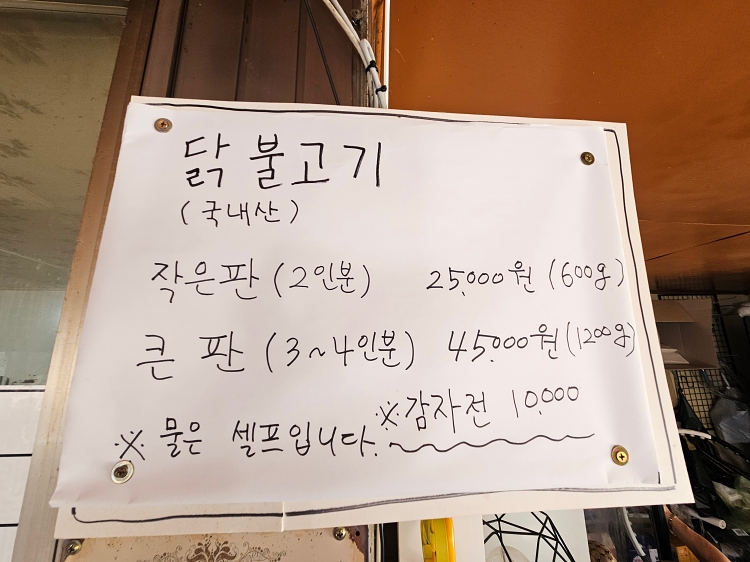 닭 불고기
(국내산)
작은판 (2인분) 25,000원 (600g)
큰 판 (3~4인분) 45,000원 (1200g)
※ 물은 셀프입니다.
※감자전 10,000